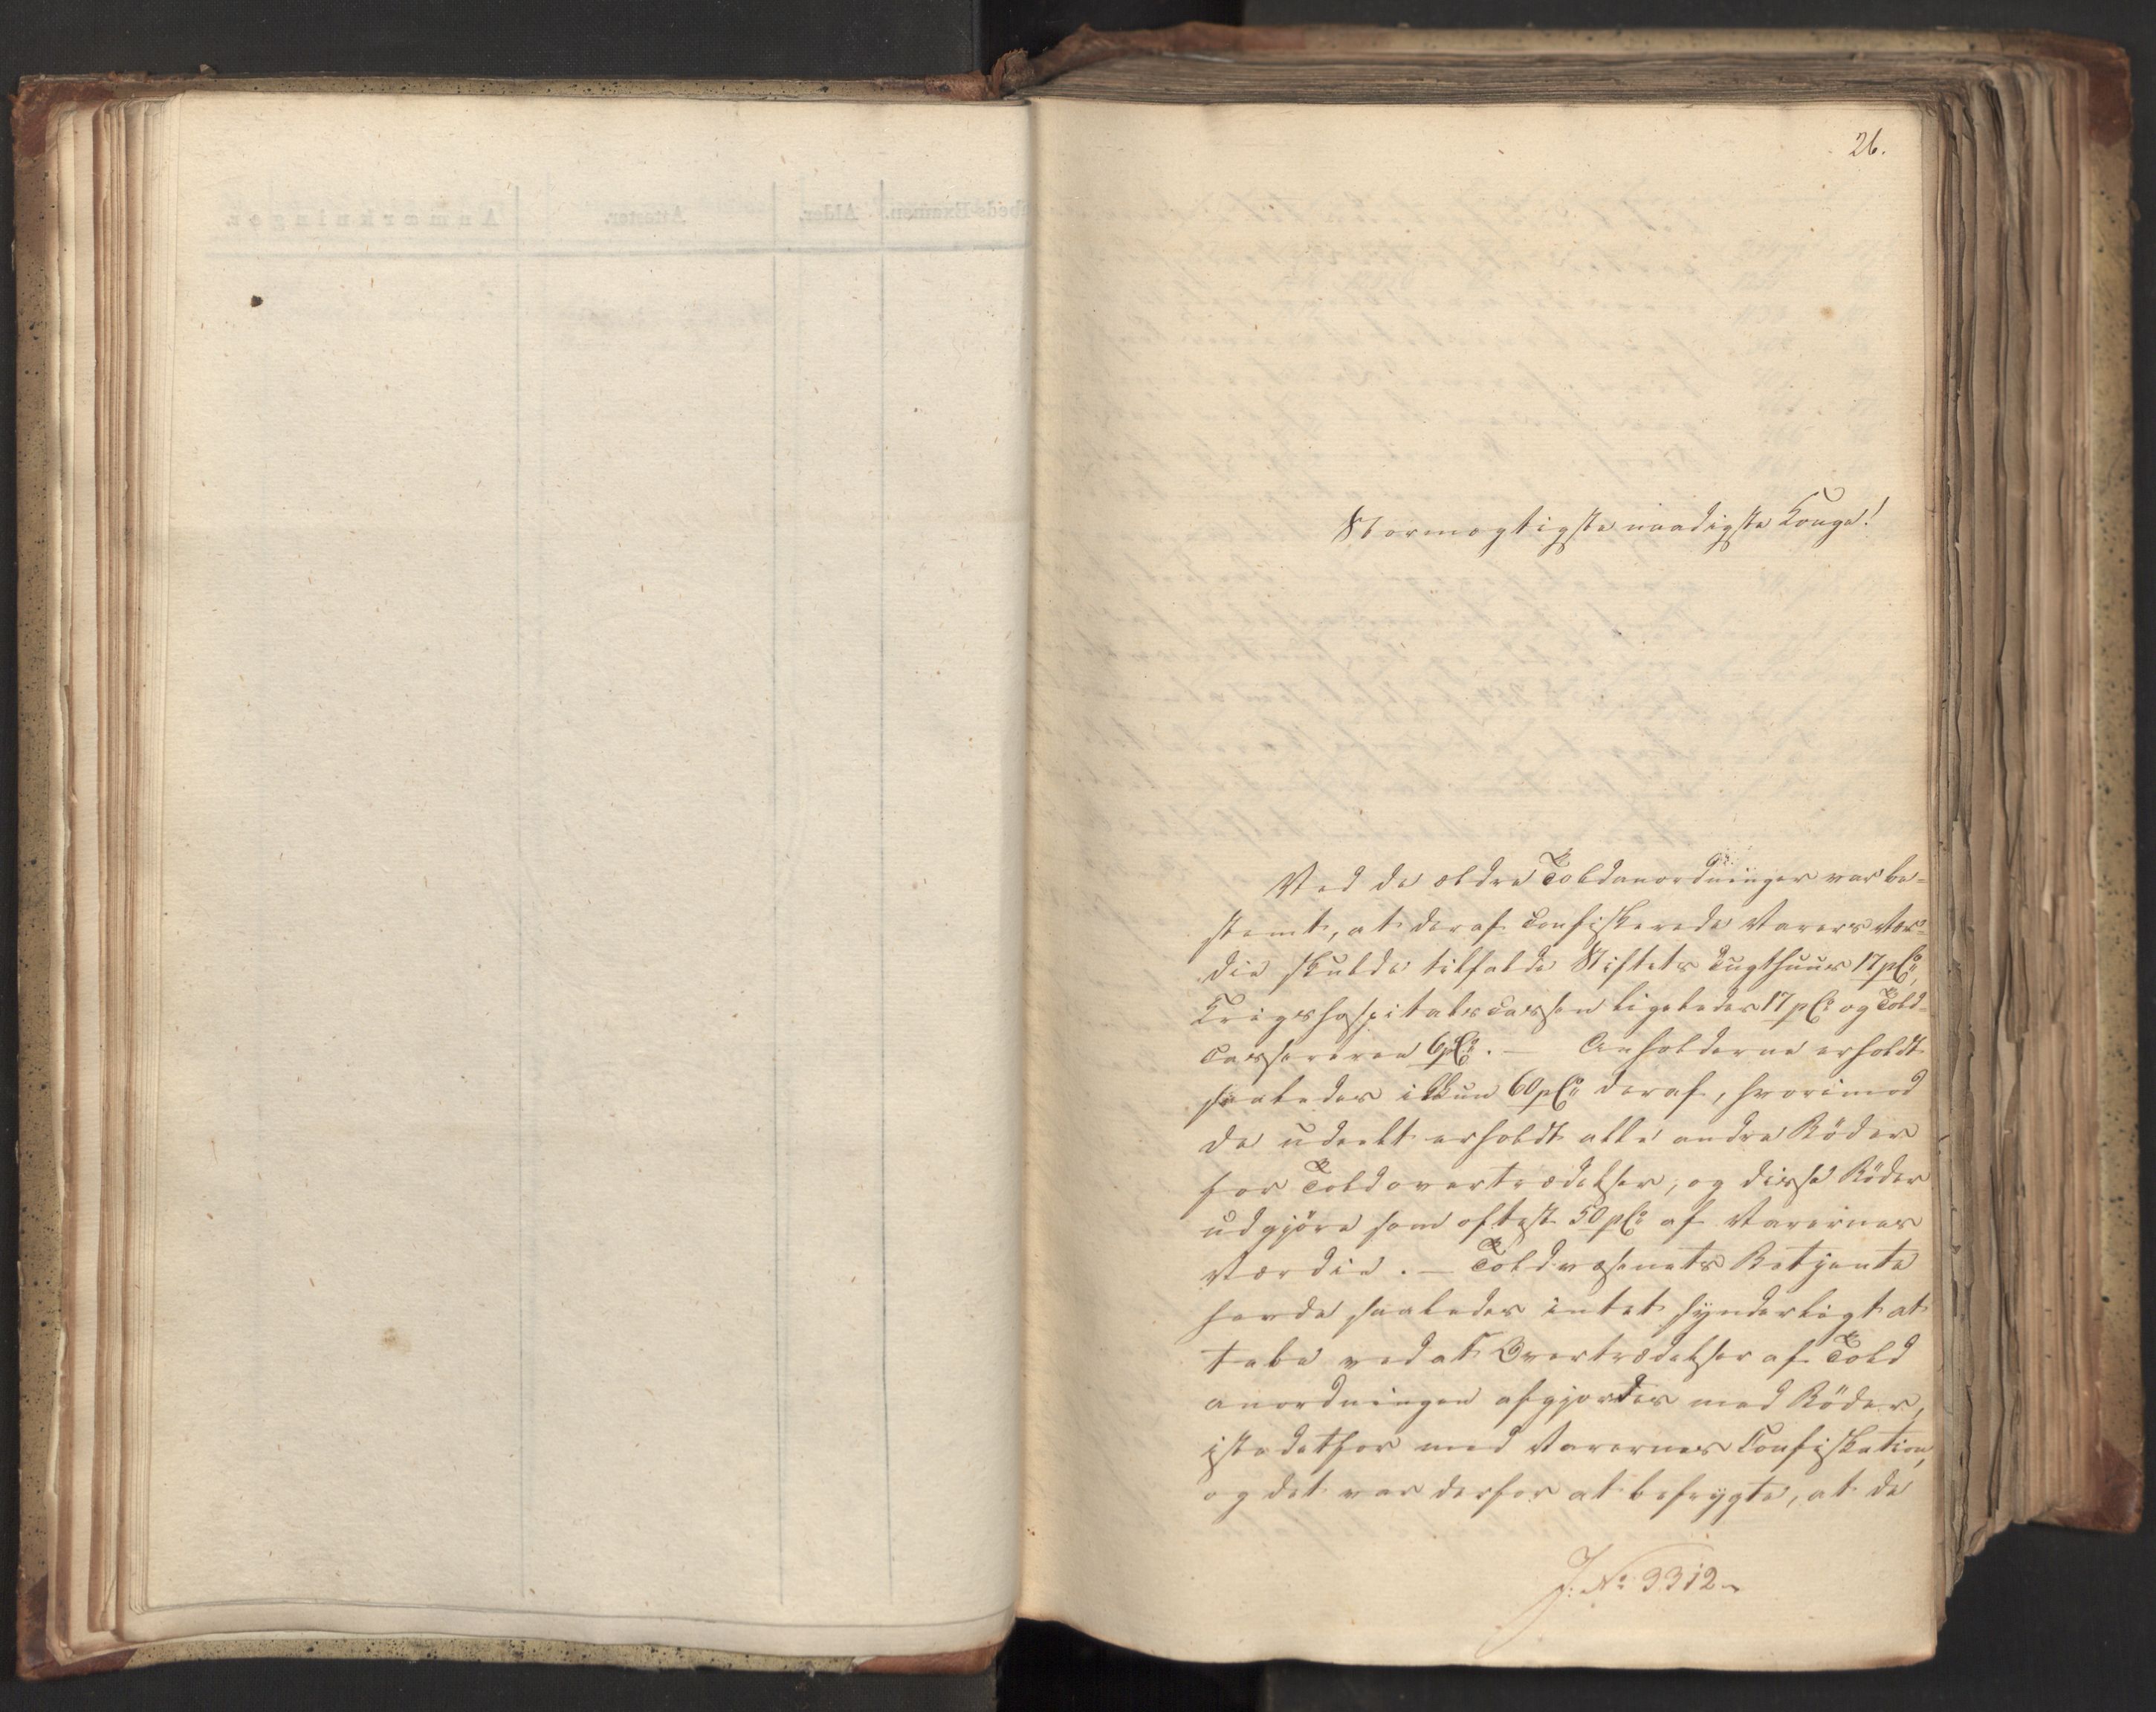 26.
Stormægtigste naadigste Konge!
Ved de ældre Toldanordninger var be-
stemt, at deraf Confiskerede Varers Vær-
die skulde tilfalde Stiftets Tugthuus 17 pCt,
Krigshospitalscassen ligeledes 17 pCt og Told-
Cassereren 6 pCt. — Anholderne erholdt
saaledes ikkun 60 pCt deraf, hvorimod
de udeelt erholdt alle andre Böder
for Toldovertrædelser, og disse Böder
udgjöre som oftest 50 pCt af Varernes
Værdie. — Toldvæsenets Betjente
havde saaledes intet synderligt at
tabe ved at Overtrædelser af Told
anordningen afgjordes med Böder,
istedetfor med Varernes Confiskation,
og det var derfor at befrygte, at de
J. No 3312